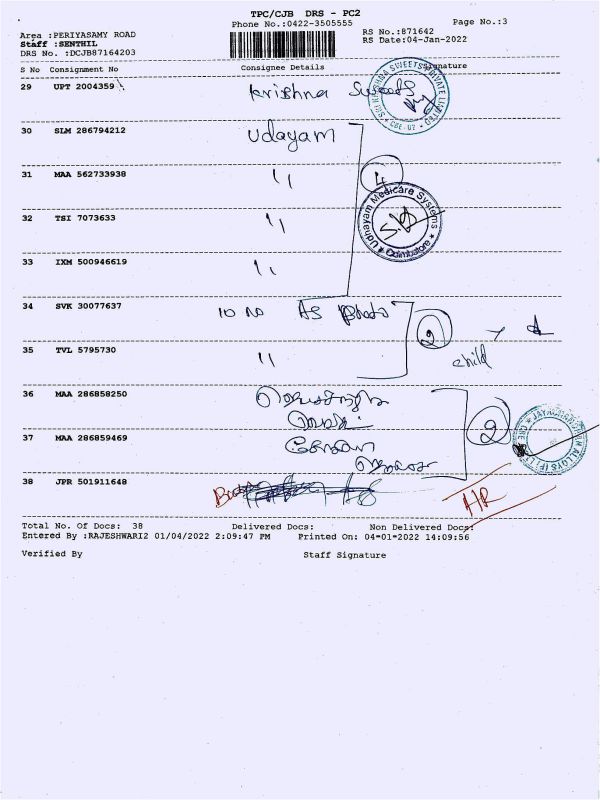 TPC/CJB DRS - PC2
Phone No.:0422-3505555
Page No.:3
Area :PERIYASAMY ROAD
Staff :SENTHIL
DRS No. :DCJB87164203
RS No.:871642
RS Date:04-Jan-2022
S No Consignment No Consignee Details Signature
29 UPT 2004359 Krishna Sweets
SRI KRISHNA SWEETS PRIVATE LIMITED
30 SLM 286794212 Udayam
31 MAA 562733938 ''
4
32 TSI 7073633 ''
Udhayam Medicare Systems
Coimbatore
33 IXM 500946619 ''
34 SVK 30077637 10 no AS photo
2
35 TVL 5795730 ''
child
36 MAA 286858250
2
37 MAA 286859469
38 JPR 501911648
Total No. Of Docs: 38 Delivered Docs: Non Delivered Docs:
Entered By :RAJESHWARI2 01/04/2022 2:09:47 PM Printed On: 04-01-2022 14:09:56
Verified By Staff Signature